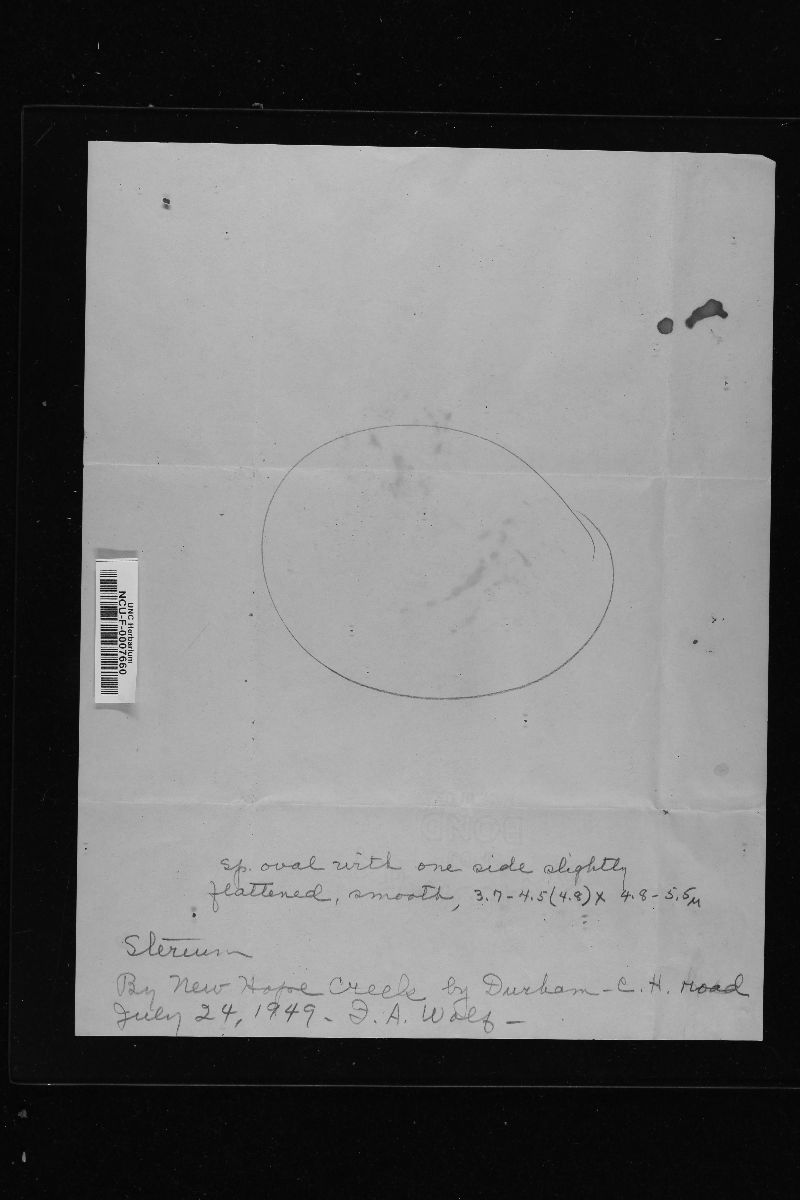 UNC Herbarium
NCU-F-0007660
BOND
sp. oval with one side slightly
flattened, smooth, 3.7-4.5(4.8) x 4.8-5.5µ
Stereum
By New Hope Creek by Durham-C.H. road
July 24, 1949 - F. A. Wolf -